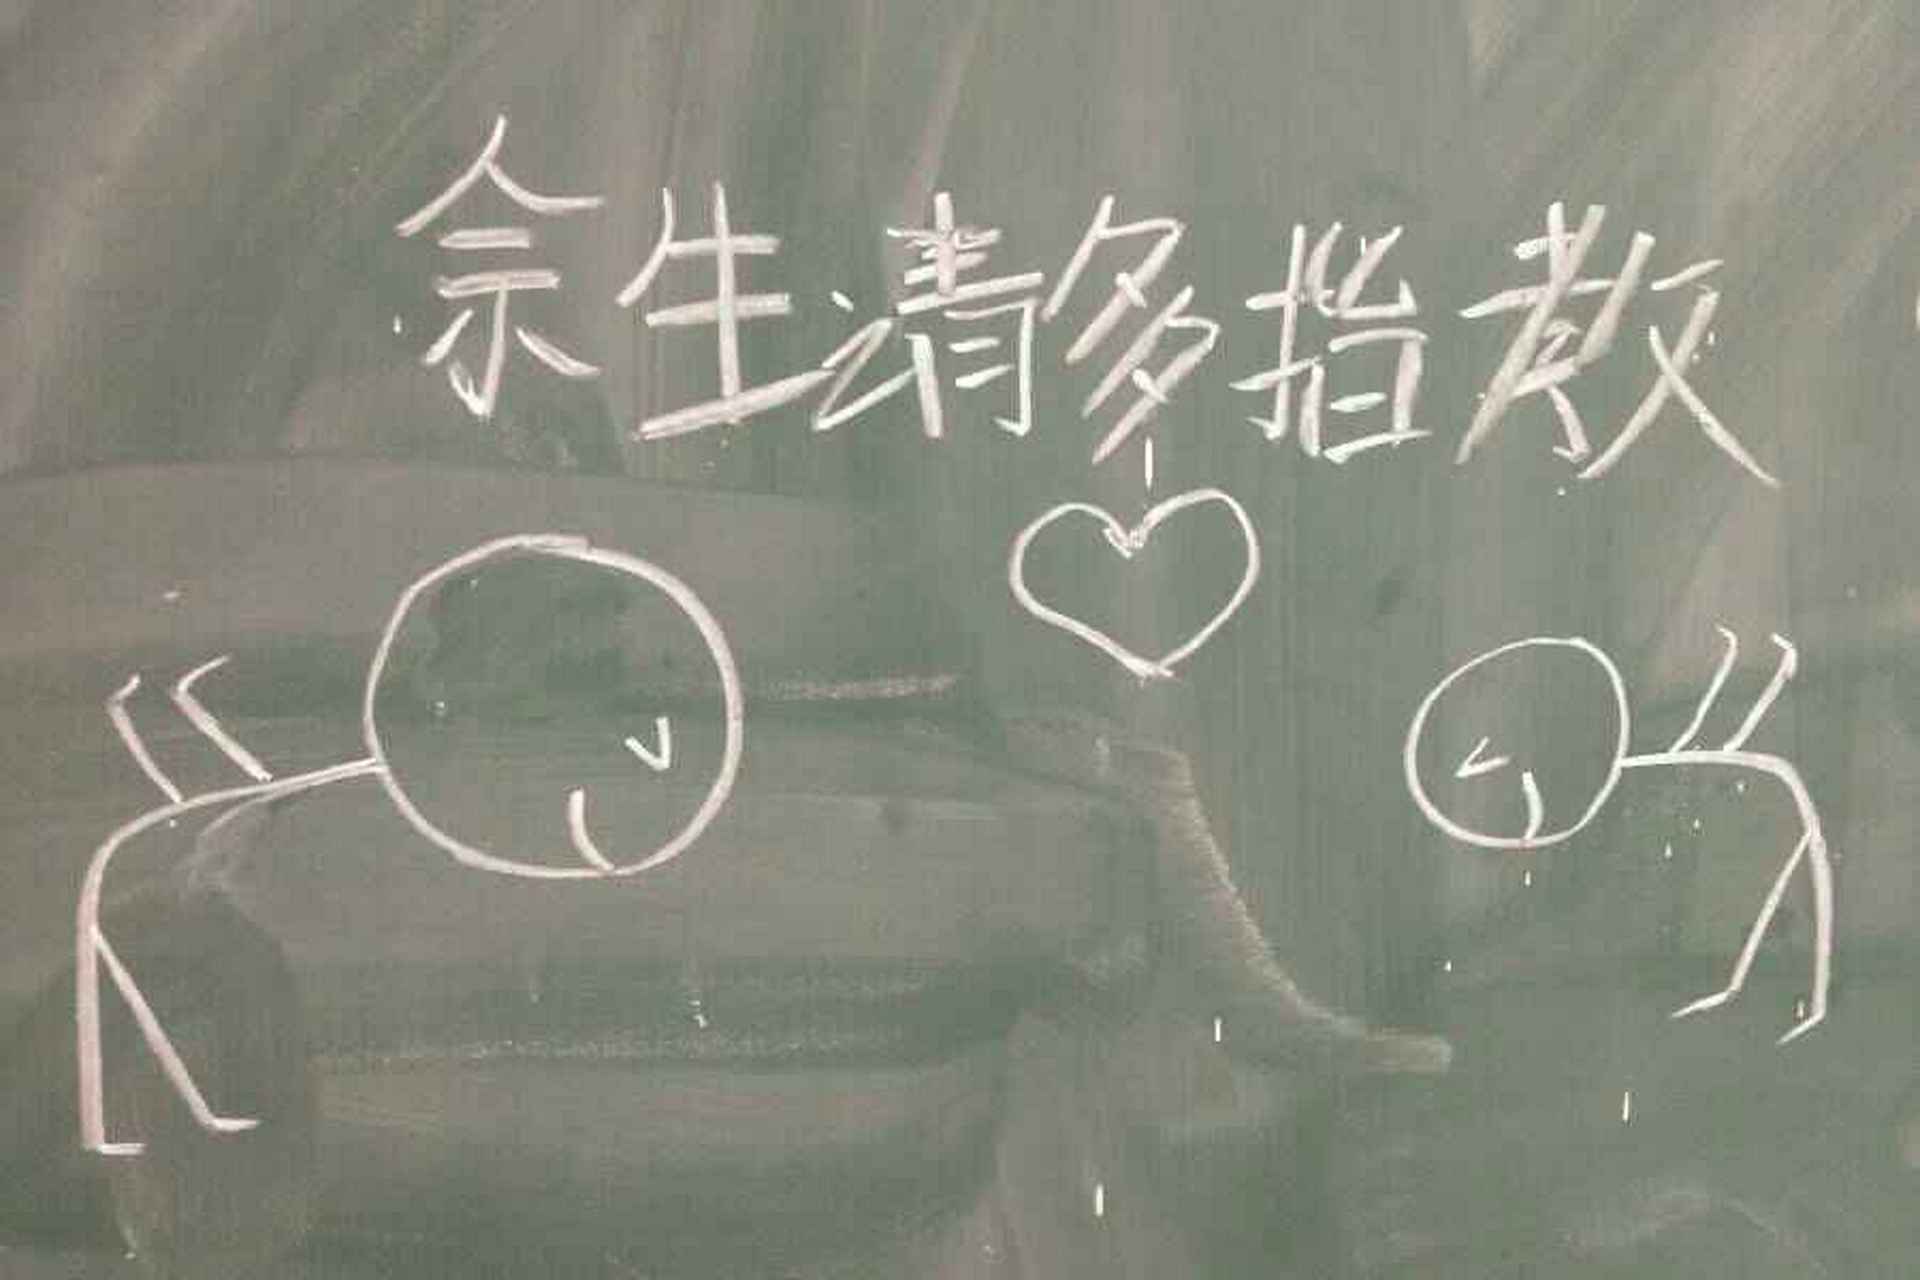 余生请多指教